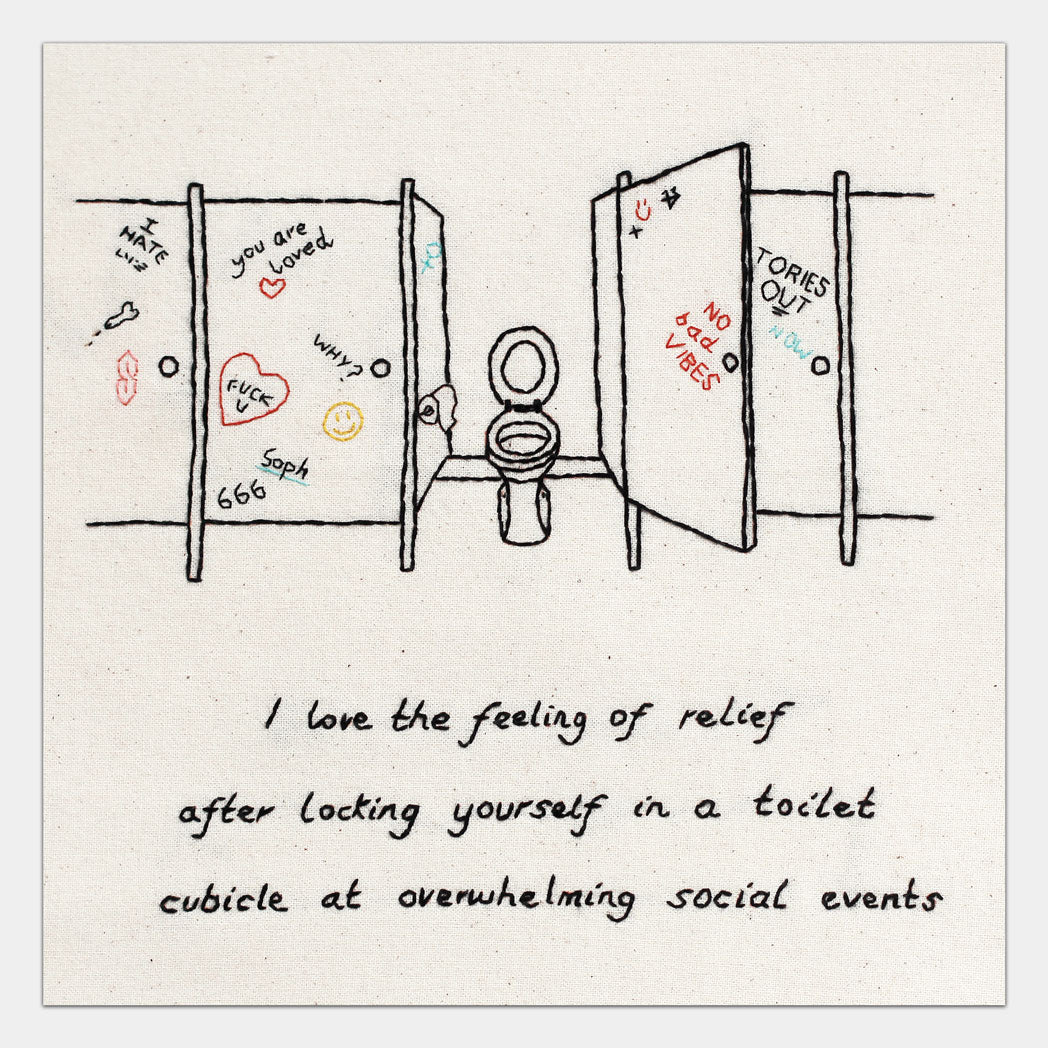 I
HATE
you are
loved
WHY?
FUCK
U
Soph
666
NO
bad
VIBES
TORIES
OUT
NOW
I love the feeling of relief
after locking yourself in a toilet
cubicle at overwhelming social events